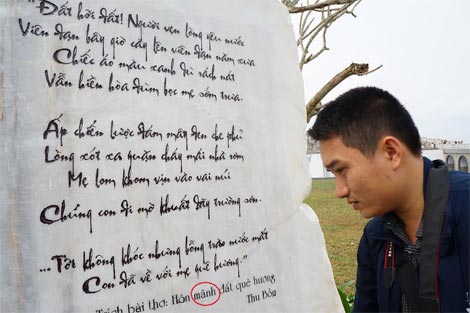 “Đất hỡi đất! Người vẹn lòng yêu nước
Viên đạn bây giờ cày lên viên đạn năm xưa
Chiếc áo màu xanh dù rách nát
Vẫn hiền hòa đùm bọc mẹ sớm trưa.
Ấp chiến lược đám mây đen che phủ
Lòng xót xa quặn cháy mái nhà rơm
Mẹ lom khom vịn vào vai núi
Chúng con đi mờ khuất dãy trường sơn.
...Tôi không khóc nhưng bỗng trào nước mắt
Con đã về với mẹ quê hương.”
Trích bài thơ: Hôn mãnh đất quê hương
Thu Bồn